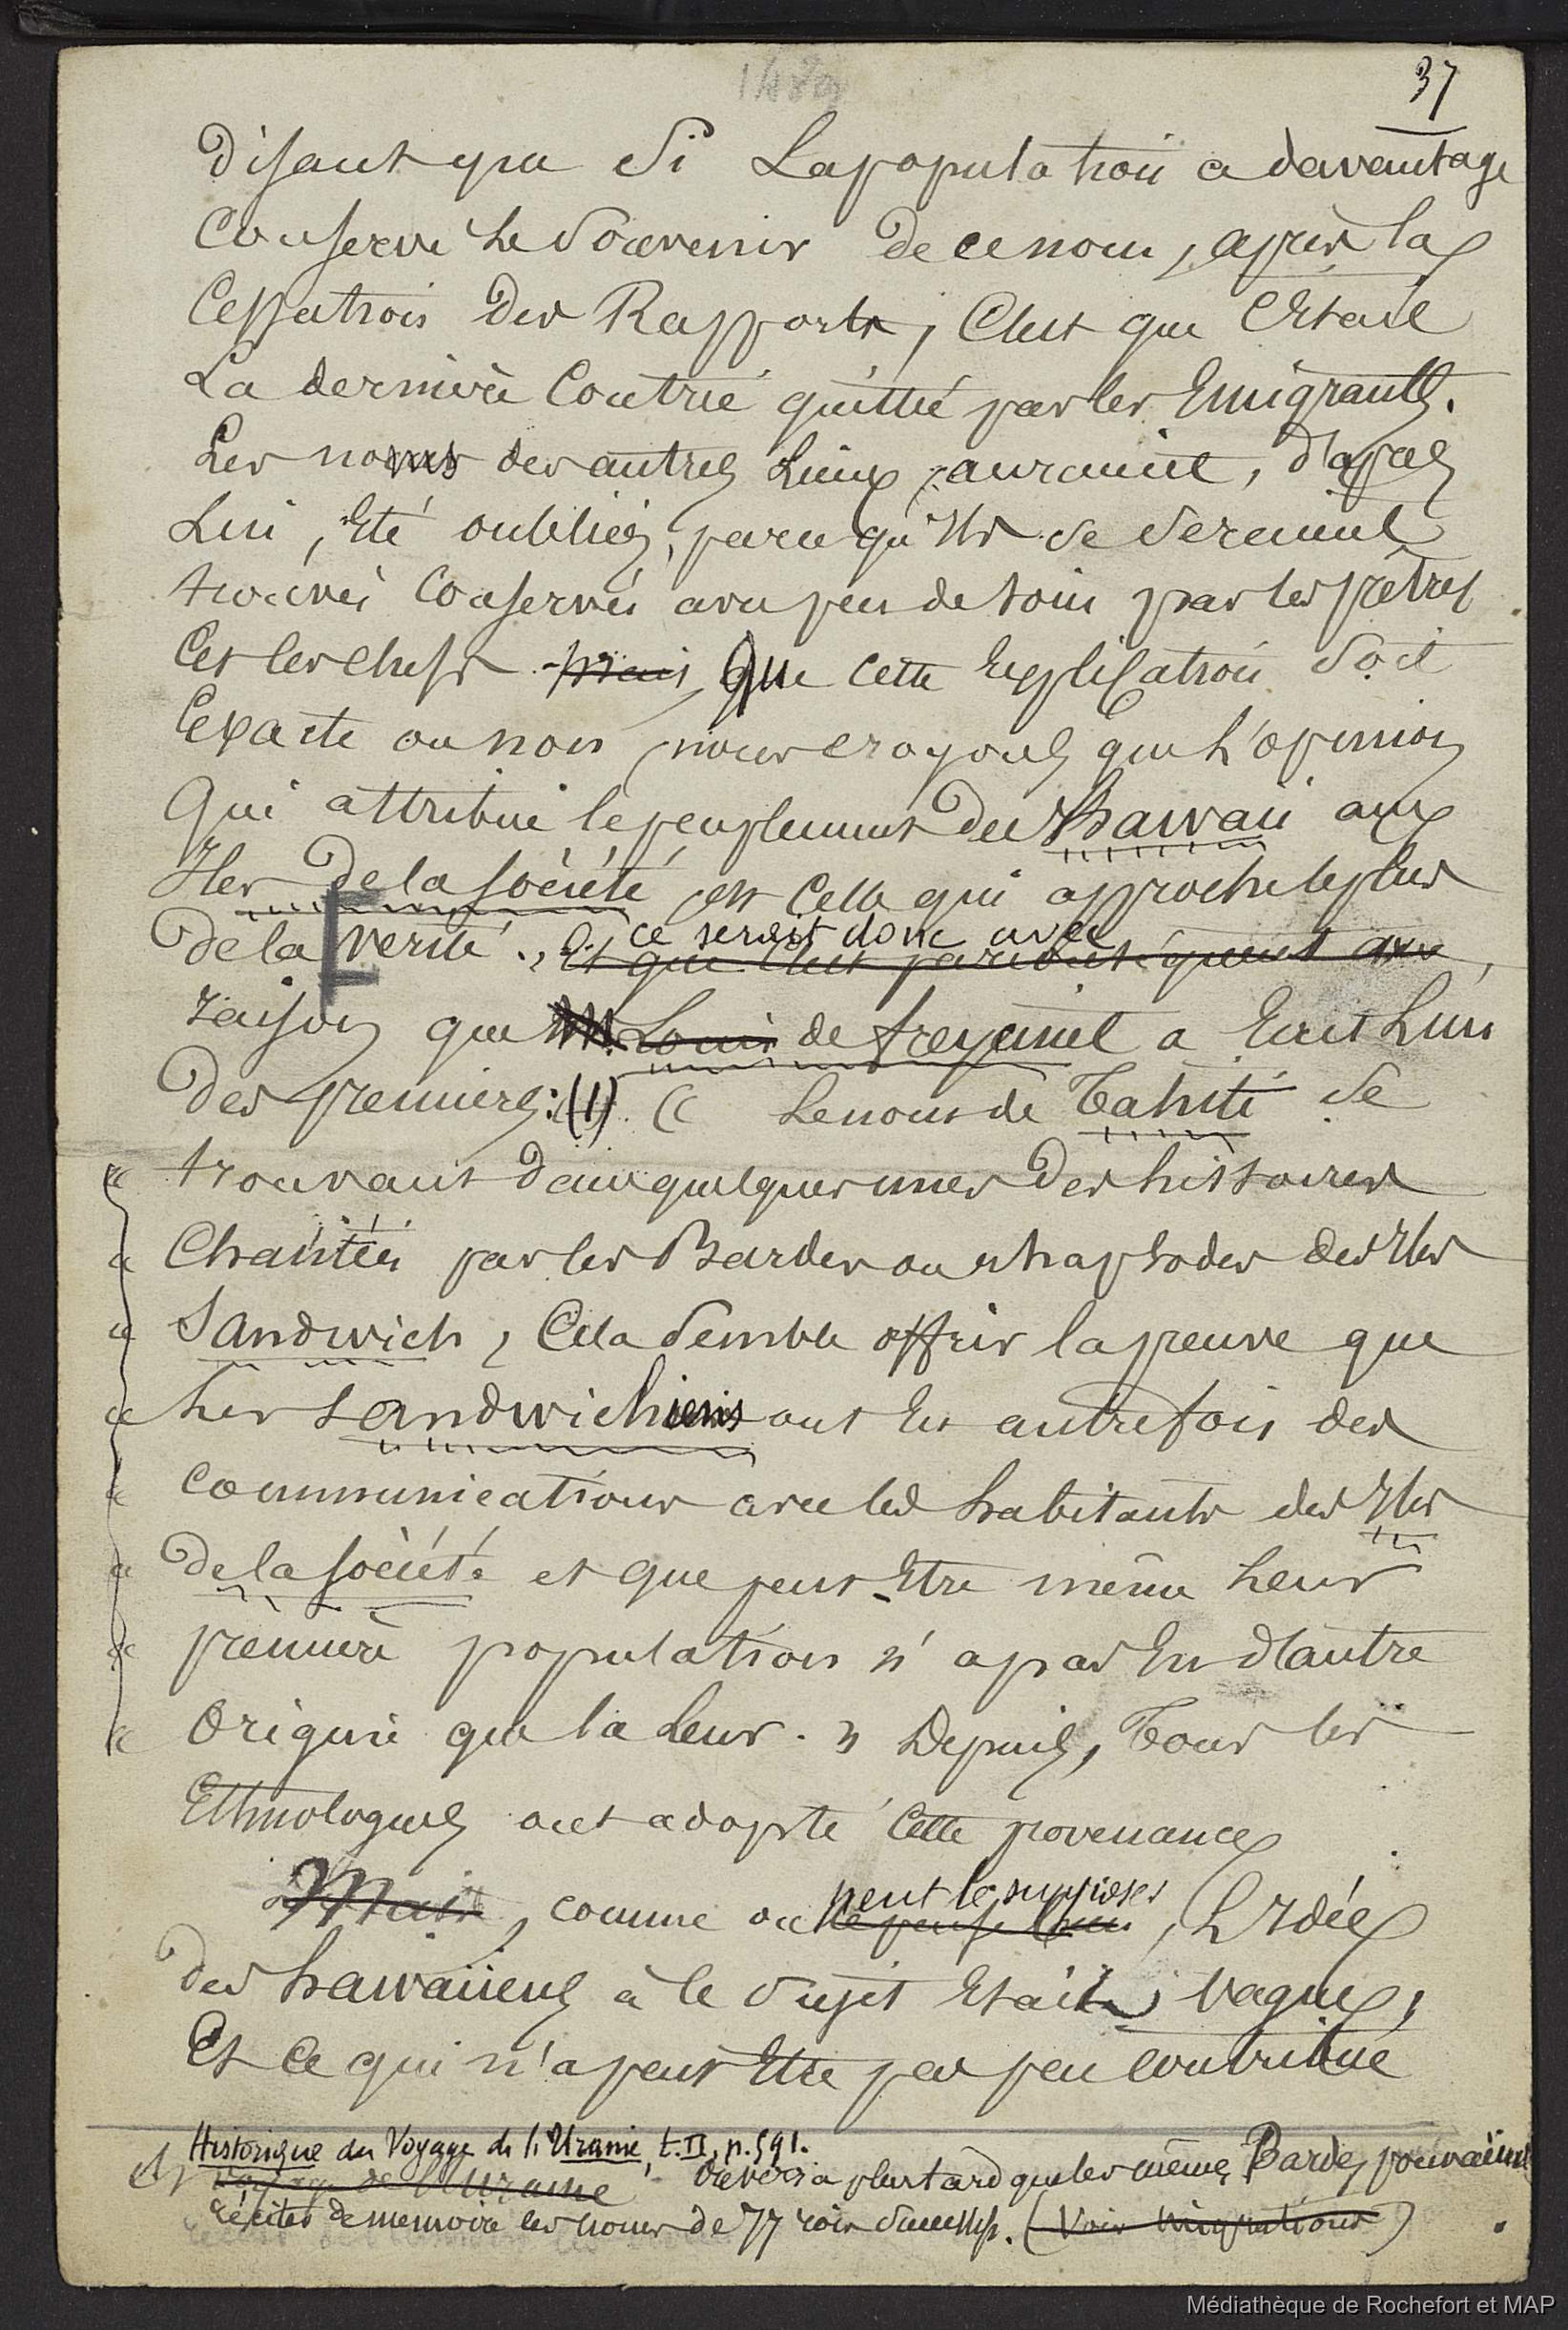 1489
37
disant que si la population a davantage
conservé le souvenir de ce nom, après la
cessation des Rapports, c'est que c'était
la dernière contrée quittée par les Emigrants.
Les noms des autres lieux, auraient, d'après
Lui, été oubliés, parce qu'ils se seraient
trouvés conservés avec peu de soin par les prêtres
et les chefs. Mais, Que cette explication soit
exacte ou non, nous croyons que l'opinion
qui attribue le peuplement des hawaii aux
Iles de la Société est celle qui approche le plus
de la verité., ce serait donc avec
Et que c'est par conséquent avec
raison que M. Louis de freycinet a écrit l'un
des premiers: (1) « Le nom de Tahiti se
« trouvant dans quelques unes des histoires
« Chantées par les Bardes ou rhapsodes des Iles
« Sandwich, Cela semble offrir la preuve que
« les sandwichiens ont eu autrefois des
« communications avec les habitants des Iles
« de la Société et que peut-Etre même leur
« première population n'a pas eu d'autre
« Origine que la leur. » Depuis, Tous les
Ethnologues ont adopté cette provenance
Mais, comme on peut le supposer
le pense bien, L'Idée
des hawaiiens à ce sujet était vague,
Et ce qui n'a peut Etre pas peu contribué
(1) Historique du Voyage de l'Uranie, t. II, p. 591.
Voyage de l'Uranie On verra plus tard que les mêmes Bardes pouvaient
réciter de memoire les noms de 77 rois successifs. (Voir migrations)
Médiathèque de Rochefort et MAP